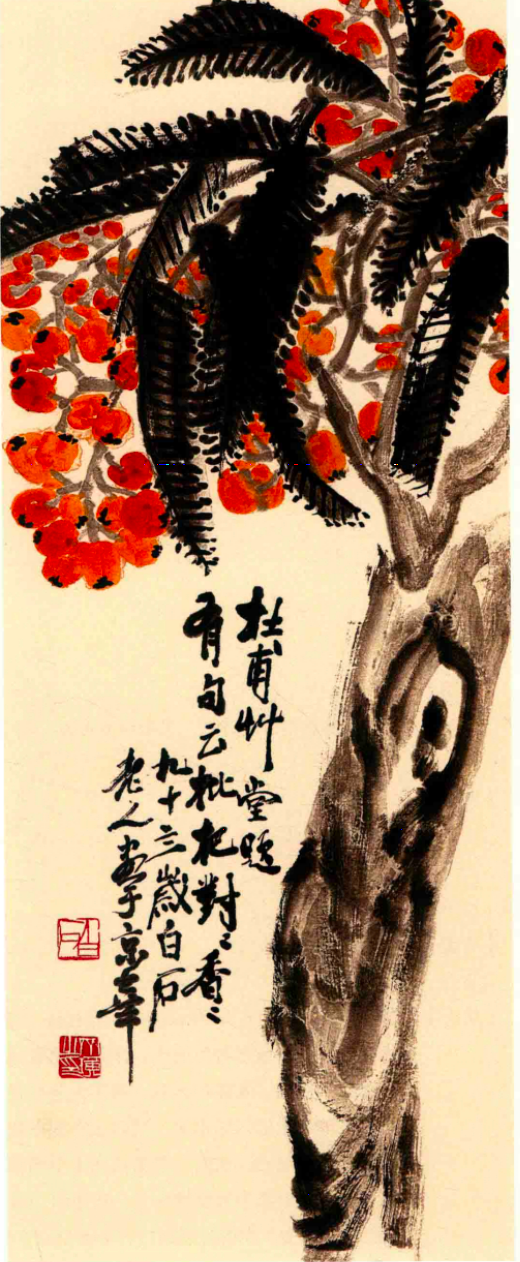 杜甫艸堂題
有句云枇杷對〻香〻
九十三歲白石
老人畫于京華